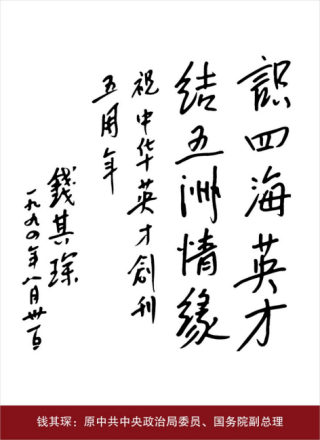 识四海英才
结五洲情缘
祝中华英才创刊
五周年
钱其琛
一九九四年八月卅一日
钱其琛：原中共中央政治局委员、国务院副总理